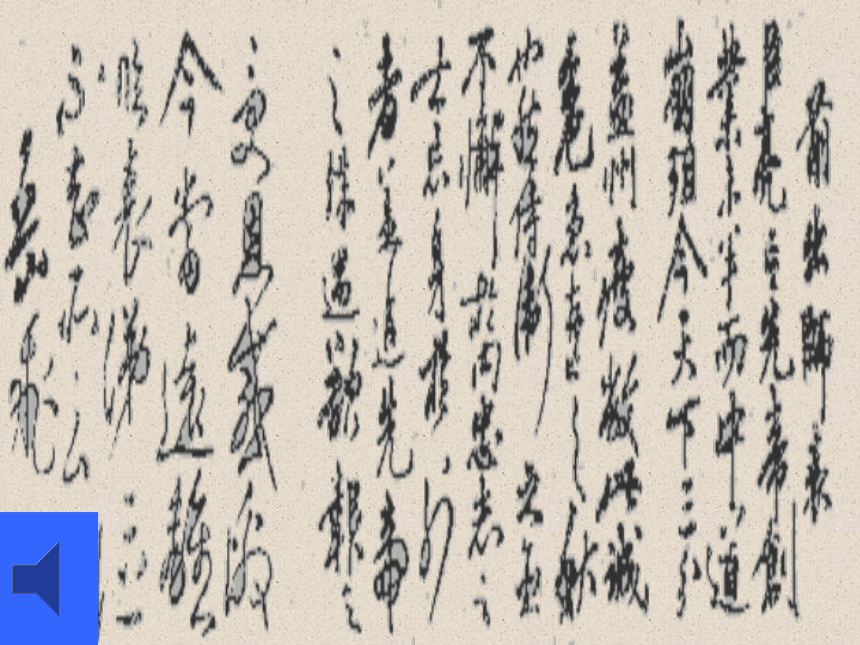 前出師表
臣亮言先帝創
業未半而中道
崩殂今天下三分
益州疲敝此誠
危急存亡之秋
也然侍衛之臣
不懈於内忠志之
士忘身於外
者蓋追先帝
之殊遇欲報之
受恩感激
今當遠離
臨表涕泣
不知所云
岳飛